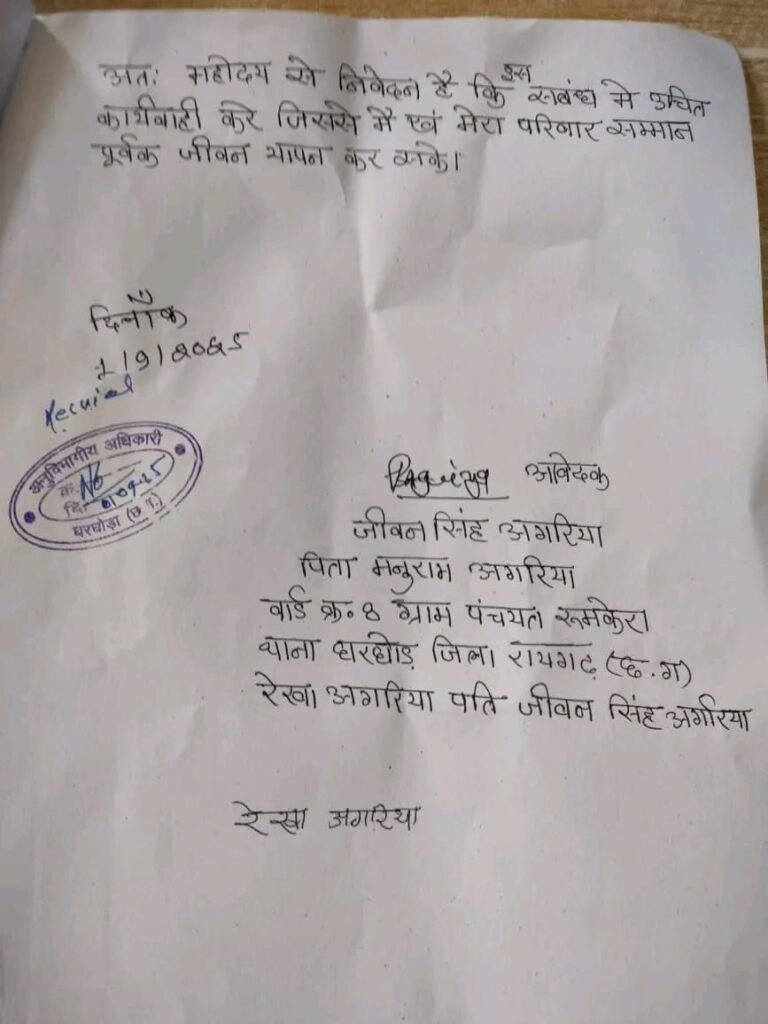 अतः महोदय से निवेदन है कि इस सबंध मे उचित
कार्यवाही करे जिससे मै एवं मेरा परिवार सम्मान
पूर्वक जीवन यापन कर सके।
दिनाँक
1/9/2025
अनुविभागीय अधिकारी
क्र.
दि.- 01-09-25
घरघोड़ा (छ.ग.)
आवेदक
जीवन सिंह अगरिया
पिता मनुराम अगरिया
वार्ड क्र. 8 ग्राम पंचयत रूमकेरा
थाना घरघोड़ जिला रायगढ़ (छ.ग)
रेखा अगरिया पति जीवन सिंह अगरिया
रेखा अगरिया